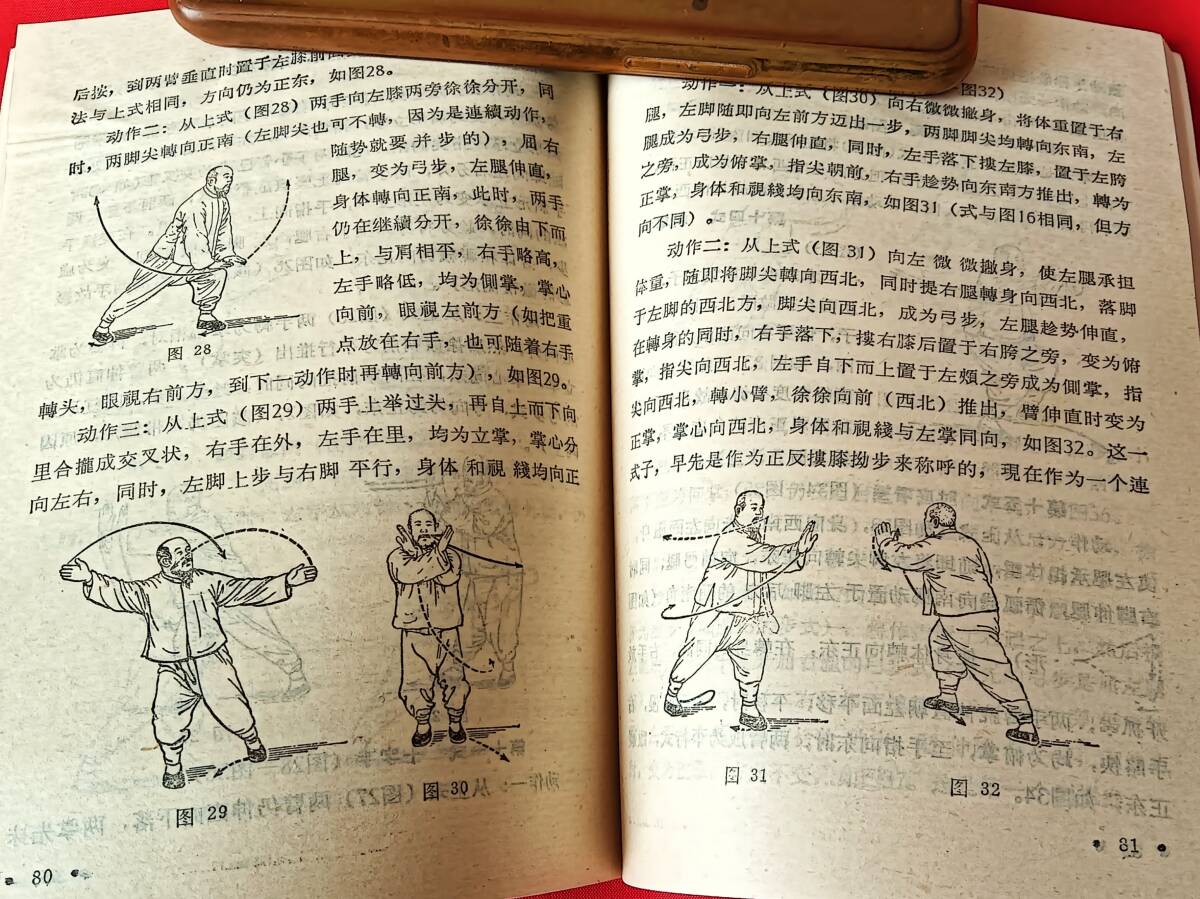 后按，到两臂垂直时置于左膝前
法与上式相同，方向仍为正东，如图28。
动作二：从上式（图28）两手向左膝两旁徐徐分开，同
时，两脚尖轉向正南（左脚尖也可不轉，因为是連續动作，
随势就要并步的），屈右
腿，变为弓步，左腿伸直，
身体轉向正南，此时，两手
仍在继續分开，徐徐由下而
上，与肩相平，右手略高，
左手略低，均为側掌，掌心
向前，眼視左前方（如把重
点放在右手，也可随着右手
图 28
轉头，眼視右前方，到下一动作时再轉向前方），如图29。
动作三：从上式（图29）两手上举过头，再自上而下向
里合攏成交叉状，右手在外，左手在里，均为立掌，掌心分
向左右，同时，左脚上步与右脚平行，身体和視綫均向正
图 29
图 30
80
图32）
动作一：从上式（图30）向右微微撇身，将体重置于右
腿，左脚随即向左前方迈出一步，两脚脚尖均轉向东南，左
腿成为弓步，右腿伸直，同时，左手落下搂左膝，置于左胯
之旁，成为俯掌，指尖朝前，右手趁势向东南方推出，轉为
正掌，身体和視綫均向东南，如图31（式与图16相同，但方
向不同）。
动作二：从上式（图31）向左微微撇身，使左腿承担
体重，随即将脚尖轉向西北，同时提右腿轉身向西北，落脚
于左脚的西北方，脚尖向西北，成为弓步，左腿趁势伸直，
在轉身的同时，右手落下，搂右膝后置于右胯之旁，变为俯
掌，指尖向西北，左手自下而上置于左頰之旁成为側掌，指
尖向西北，轉小臂，徐徐向前（西北）推出，臂伸直时变为
正掌，掌心向西北，身体和視綫与左掌同向，如图32。这一
式子，早先是作为正反搂膝拗步来称呼的，現在作为一个連
图 31
图 32
81